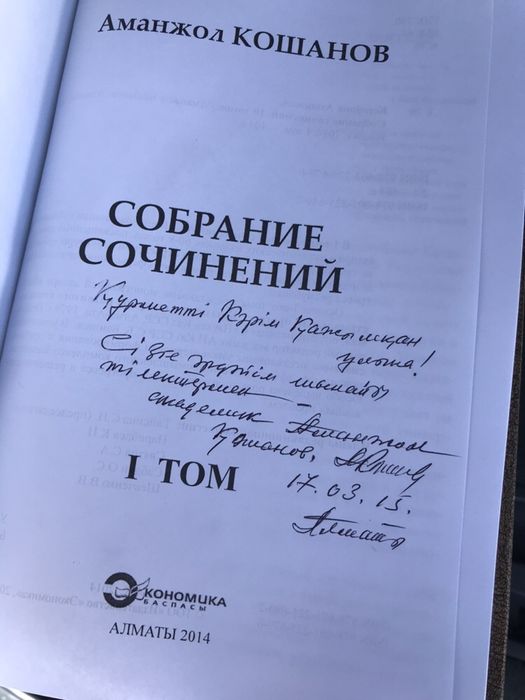 Аманжол КОШАНОВ
СОБРАНИЕ
СОЧИНЕНИЙ
Құрметті Кәрім Қажымқан
ұлына!
Сізге шынайы
тілектермен –
академик Аманжол
Қошанов,
17.03.15.
Алматы
I ТОМ
ЭКОНОМИКА
БАСПАСЫ
АЛМАТЫ 2014